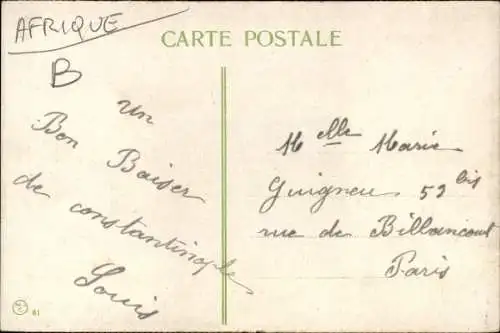 AFRIQUE
B
CARTE POSTALE
un
Bon Baiser
de constantinople
Louis
Melle Marie
Guigneu 52 bis
rue de Billancourt
Paris
61